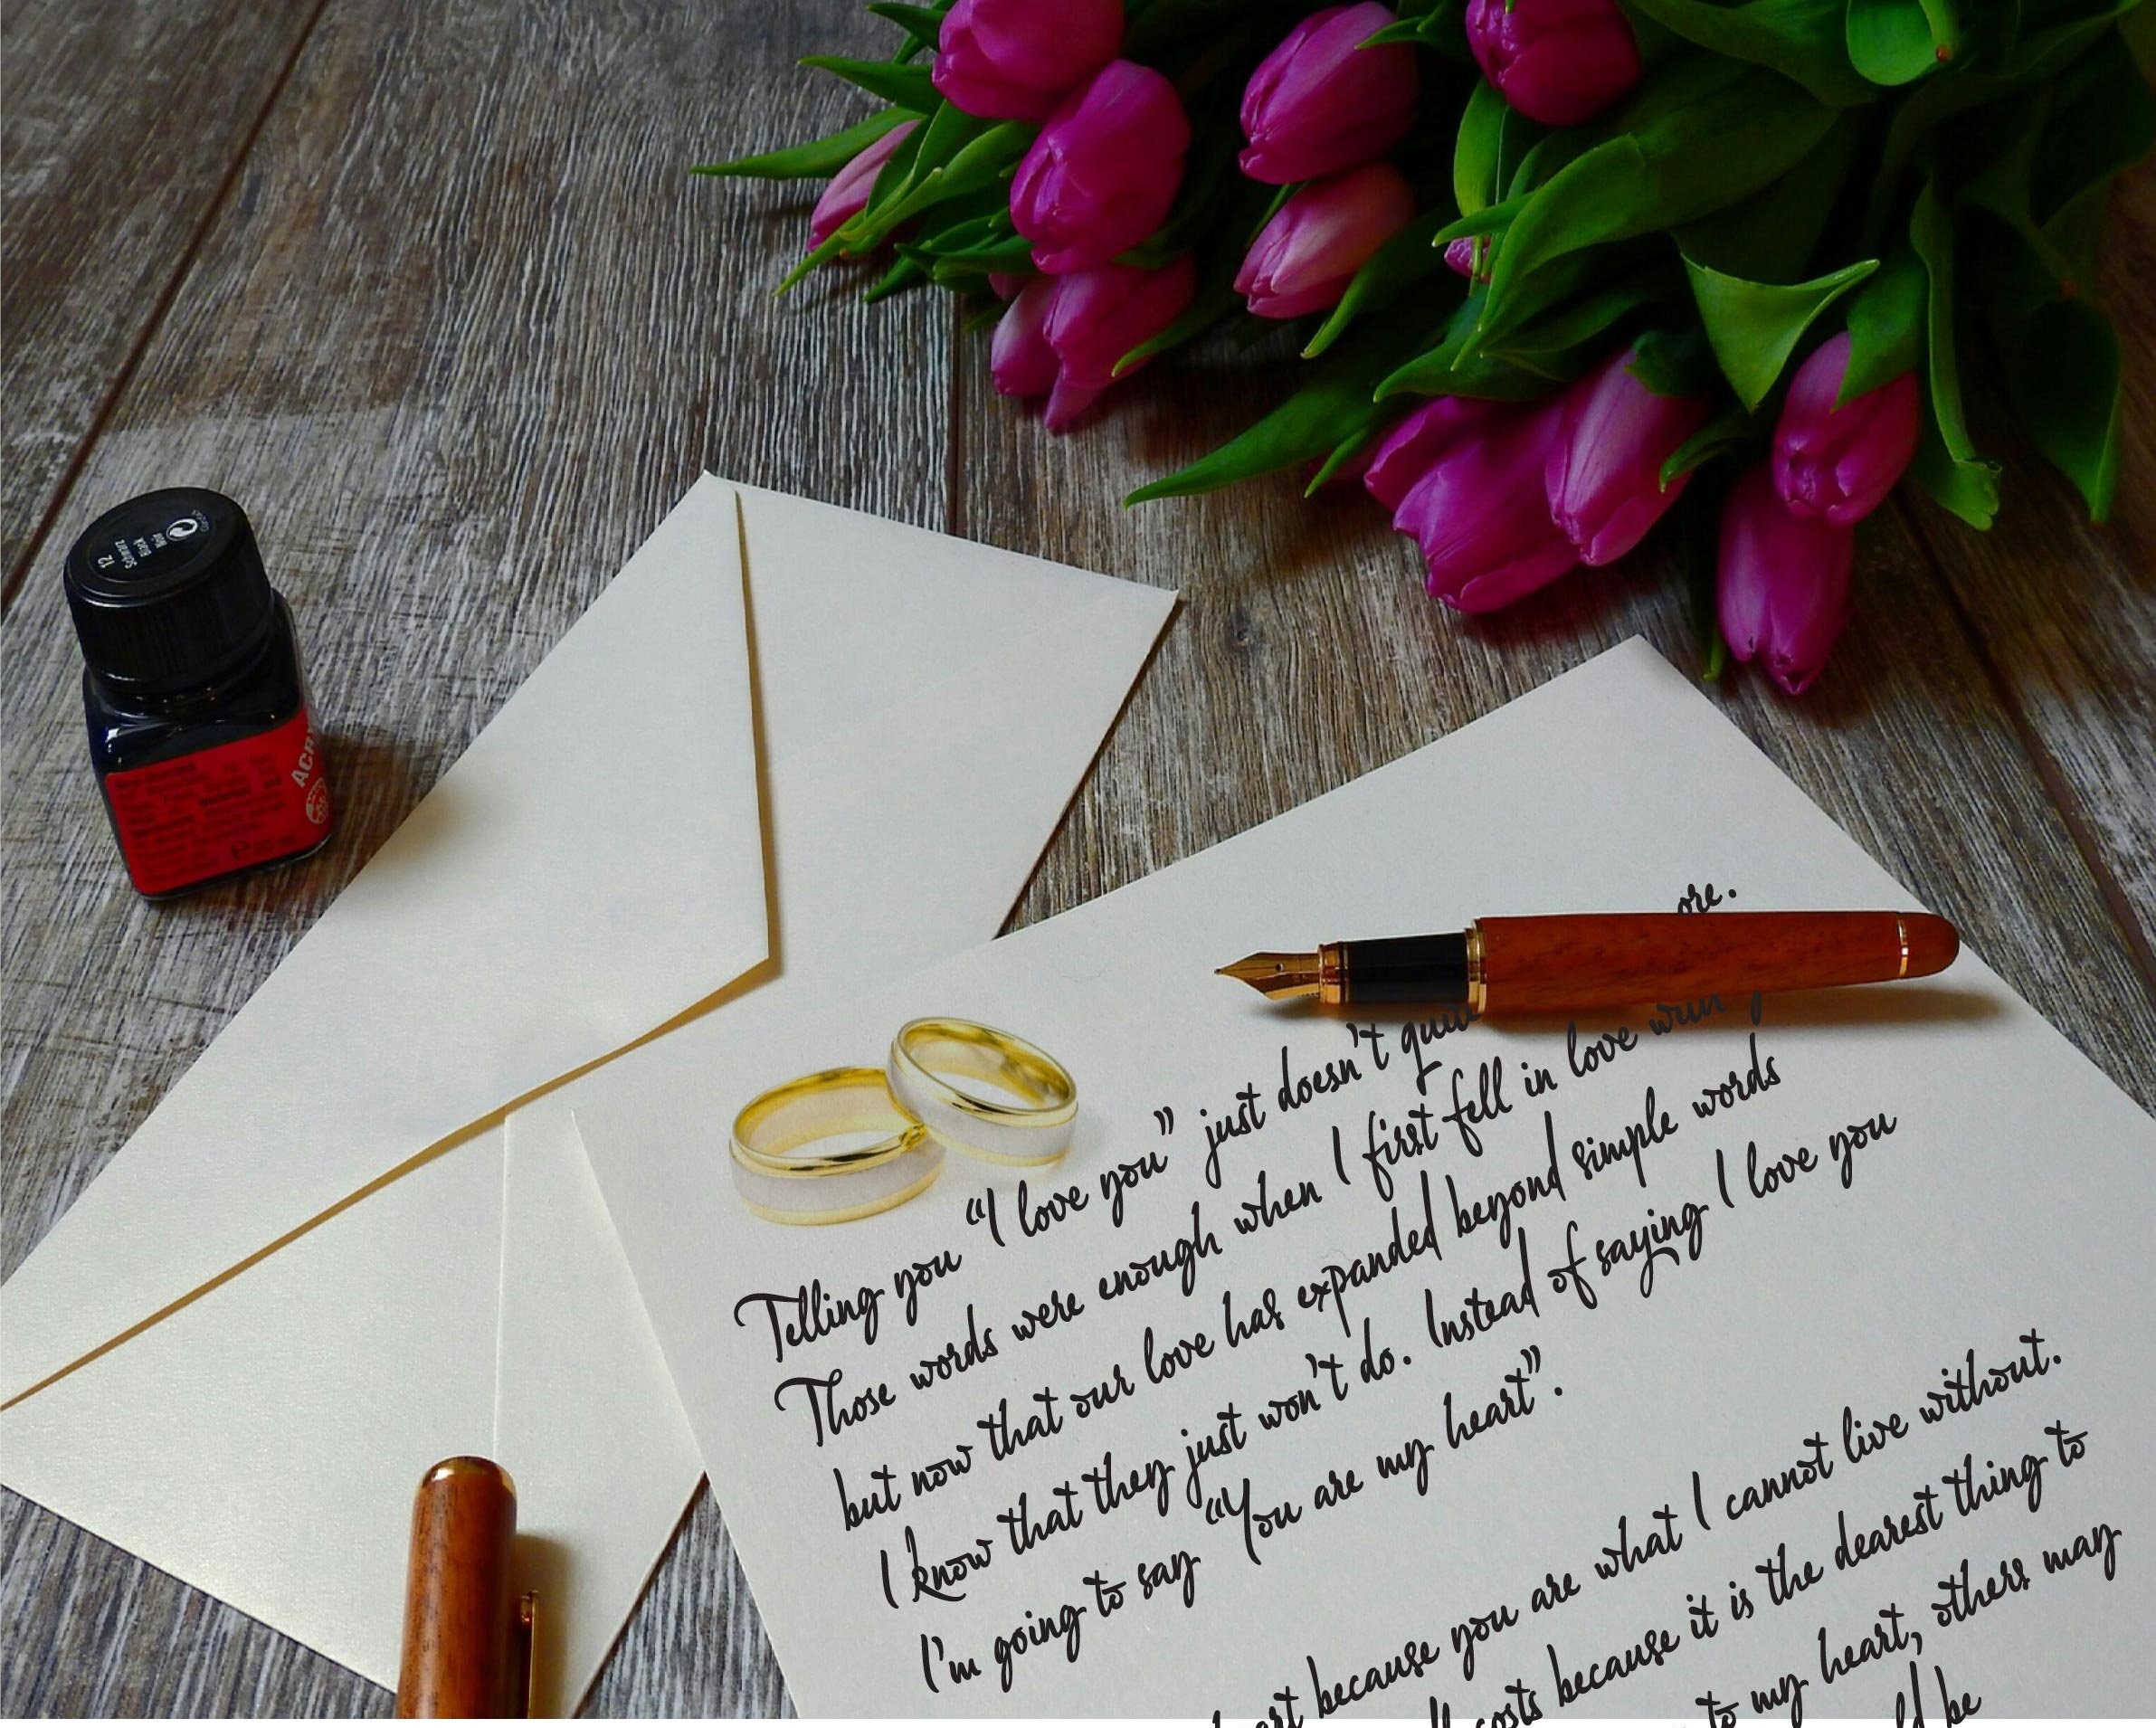 12
Schwarz
Black
Noir
ore.
Telling you “I love you” just doesn't
Those words were enough when I first fell in love
but now that our love has expanded beyond simple words
I know that they just won't do. Instead of saying I love you
I'm going to say “You are my heart”.
because you are what I cannot live without.
costs because it is the dearest thing to
to my heart, others may
be